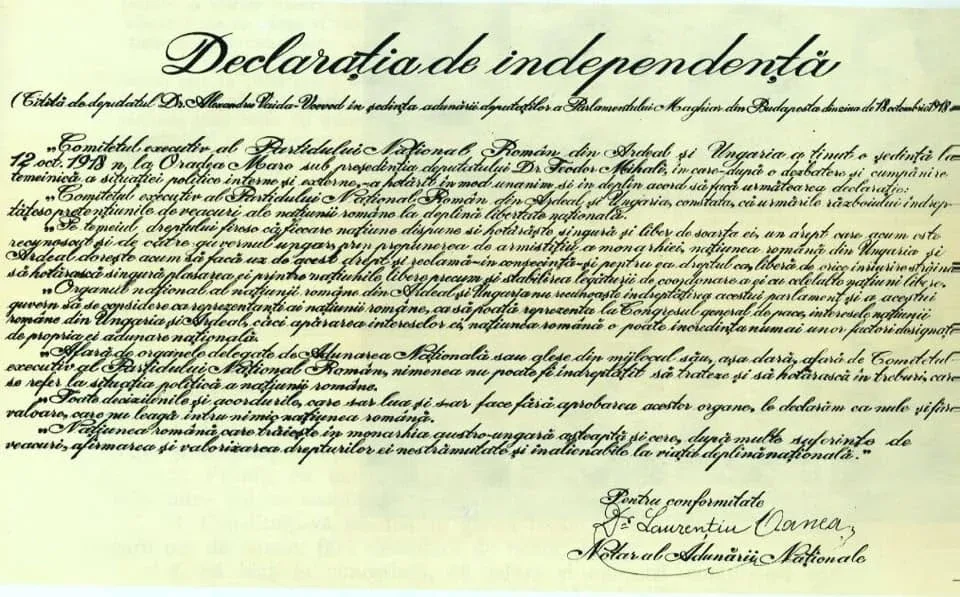 Declarația de independență
(Citită de deputatul Dr. Alexandru Vaida-Voevod în ședința adunării deputaților a Parlamentului Maghiar din Budapesta din ziua de 18 octombrie 1918
„Comitetul executiv al Partidului Național Român din Ardeal și Ungaria a ținut o ședință la
12 oct. 1918 n, la Oradea Mare sub președinția deputatului Dr. Teodor Mihali, în care-după o dezbatere și cumpănire
temeinică a situației politice interne și externe,-a hotărît în mod unanim și în deplin acord să facă următoarea declarație:
„Comitetul executiv al Partidului Național Român din Ardeal și Ungaria, constată, că urmările războiului îndrep-
tățesc pretențiunile de veacuri ale națiunii române la deplină libertate națională.
„Pe temeiul dreptului firesc că fiecare națiune dispune și hotărăște singură și liber de soarta ei, un drept care acum este
recunoscut și de către guvernul ungar, prin propunerea de armistițiu a monarhiei, națiunea română din Ungaria și
Ardeal dorește acum să facă uz de acest drept și reclamă-în consecință-și pentru ea dreptul ca, liberă de orice înrîurire străină
să hotărască singură plasarea ei printre națiunile libere precum și stabilirea legăturii de coordonare a ei cu celelalte națiuni libere.
„Organul național al națiunii române din Ardeal și Ungaria nu recunoaște îndreptățirea acestui parlament și a acestui
guvern să se considere ca reprezentanți ai națiunii române, ca să poată reprezenta la Congresul general de pace, interesele națiunii
române din Ungaria și Ardeal, căci apărarea intereselor ei, națiunea română o poate încredința numai unor factori designați
de propria ei adunare națională.
„Afară de organele delegate de Adunarea Națională sau alese din mijlocul său, așa dară, afară de Comitetul
executiv al Partidului Național Român, nimenea nu poate fi îndreptățit să trateze și să hotărască în treburi, care
se refer la situația politică a națiunii române.
„Toate deciziunile și acordurile, care s-ar lua și s-ar face fără aprobarea acestor organe, le declarăm ca nule și fără
valoare, care nu leagă întru nimic națiunea română.
„Națiunea română care trăiește în monarhia austro-ungară așteaptă și cere, după multe suferințe de
veacuri, afirmarea și valorizarea drepturilor ei nestrămutate și inalienabile la viață deplină națională."
Pentru conformitate
Dr Laurențiu Oanea,
Notar al Adunării Naționale